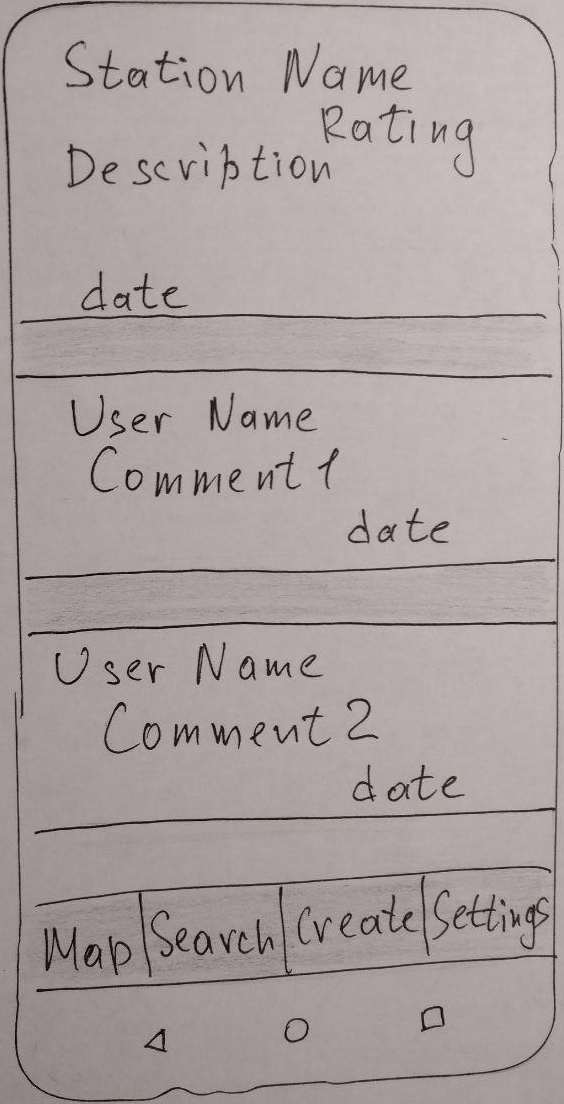 Station Name
Rating
Description
date
User Name
Comment 1
date
User Name
Comment 2
date
Map Search Create Settings